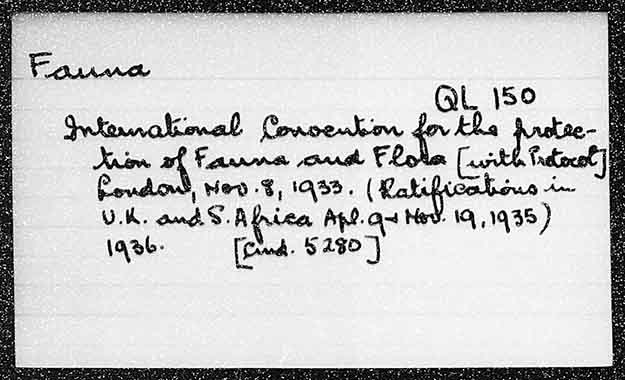 Fauna
QL 150
International Convention for the protec-
tion of Fauna and Flora [with Protocol]
London, Nov. 8, 1933. (Ratifications in
U.K. and S. Africa Apl. 9 & Nov. 19, 1935)
1936. [Cmd. 5280]